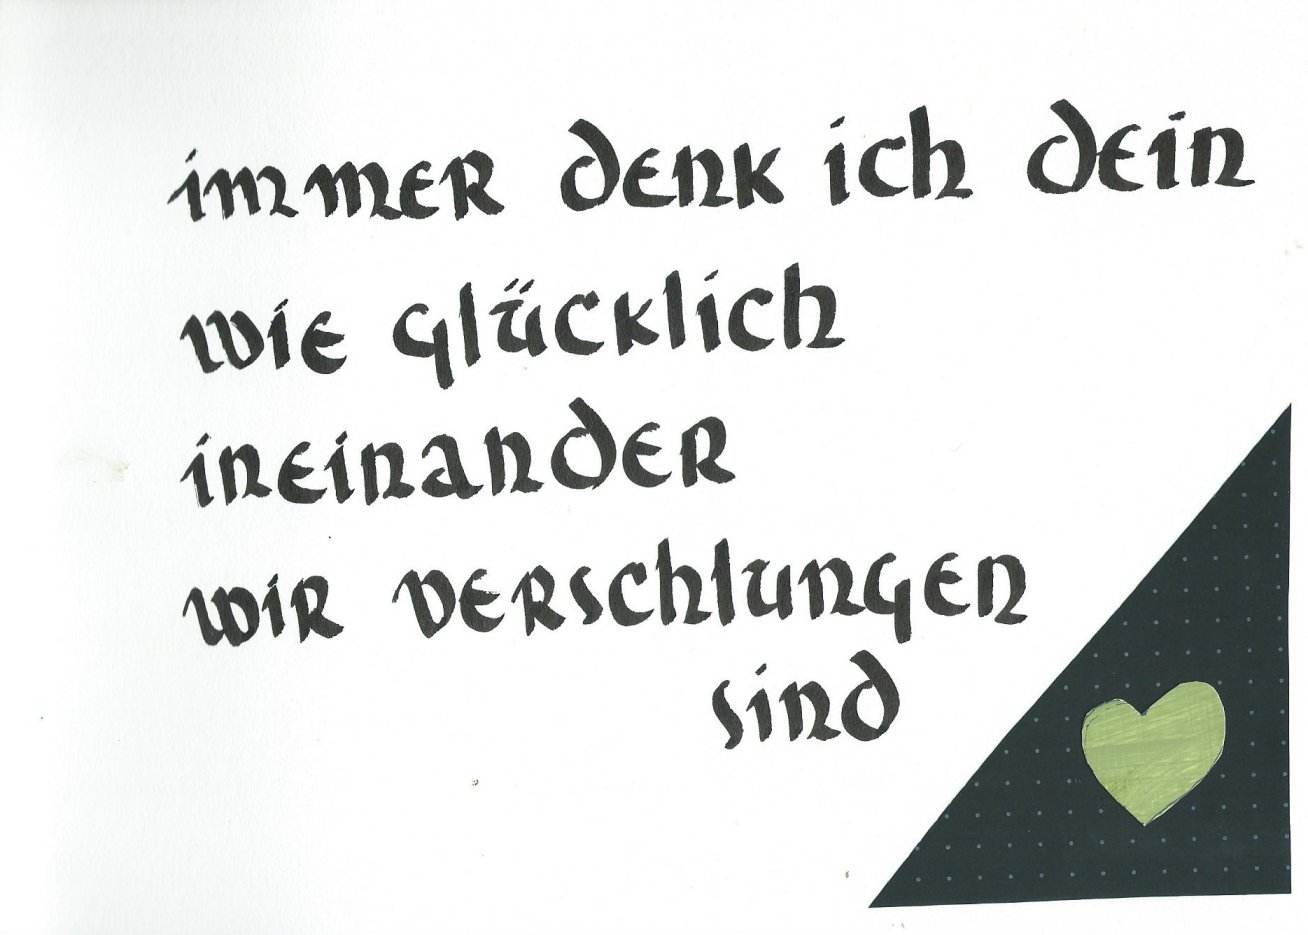 immer denk ich dein
wie glücklich
ineinander
wir verschlungen
sind